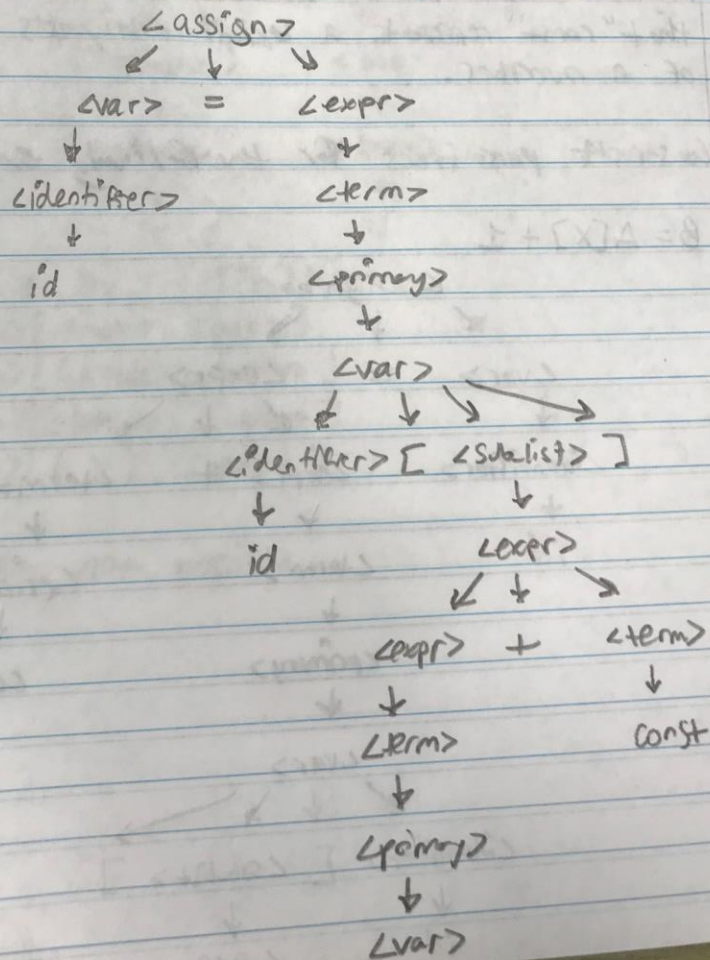 <assign>
<var> = <expr>
<identifier> <term>
id <primary>
<var>
<identifier> [ <sublist> ]
id <expr>
<expr> + <term>
<term> const
<primary>
<var>